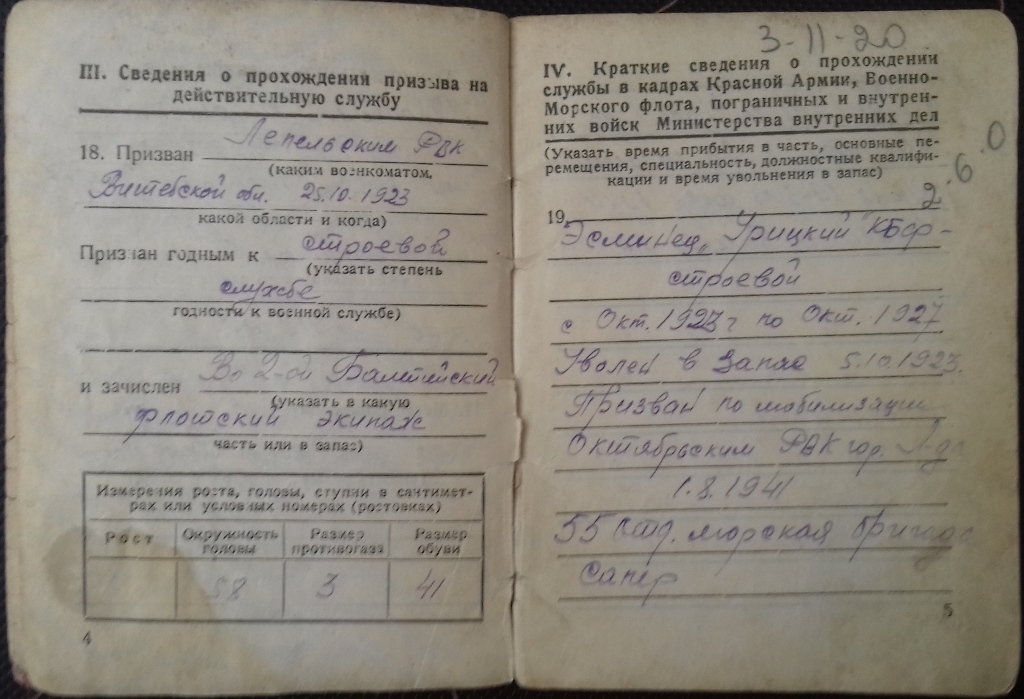 III. Сведения о прохождении призыва на
действительную службу
18. Призван Лепельским РВК
(каким военкоматом,
Витебской обл. 25.10.1923
какой области и когда)
Признан годным к строевой
(указать степень
службе
годности к военной службе)
и зачислен Во 2-ой Балтийский
(указать в какую
флотский экипаж
часть или в запас)
Измерения роста, головы, ступни в сантимет-
рах или условных номерах (ростовках)
Рост Окружность головы Размер противогаза Размер обуви
58 3 41
4
3-11-20
IV. Краткие сведения о прохождении
службы в кадрах Красной Армии, Военно-
Морского флота, пограничных и внутрен-
них войск Министерства внутренних дел
(Указать время прибытия в часть, основные пе-
ремещения, специальность, должностные квалифи-
кации и время увольнения в запас)
2.6.0
19
Эсминец „Урицкий КБФ-
строевой
с Окт. 1923 г по Окт. 1927
Уволен в Запас 5.10.1923.
Призван по мобилизации
Октябрьским РВК гор.
1.8.1941
55 морская бригада
сапер
5